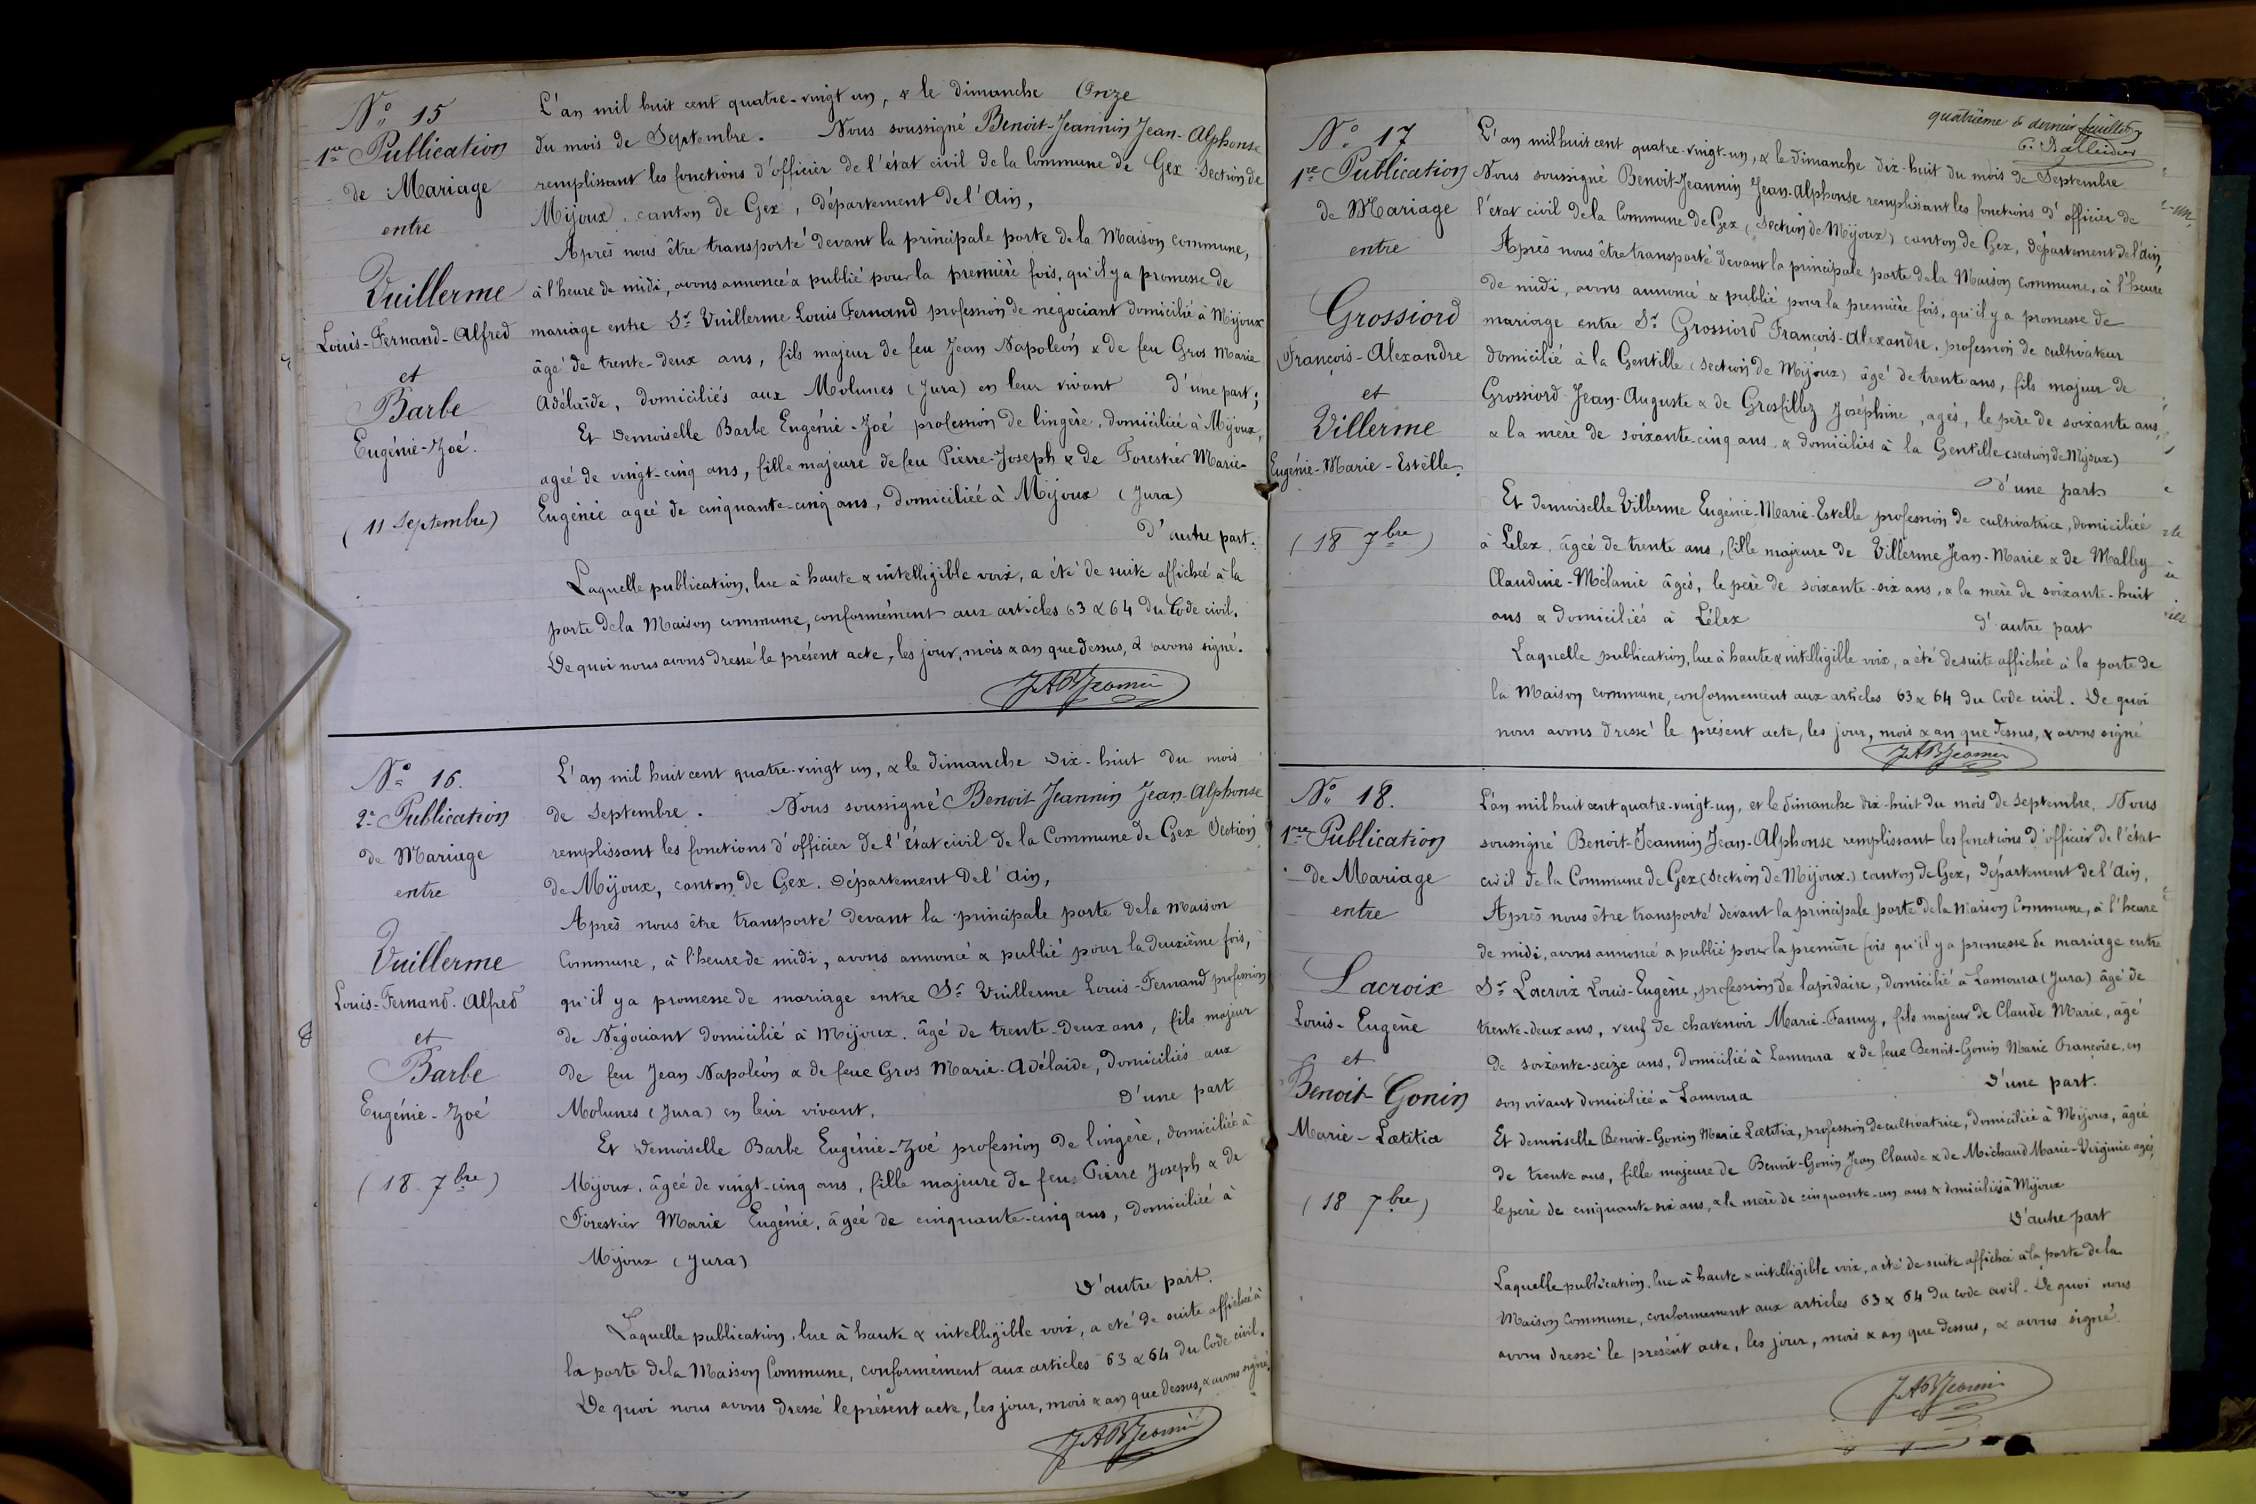 N° 15
1re Publication
de Mariage
entre
Vuillerme
Louis-Fernand-Alfred
et
Barbe
Eugénie-Zoé.
(11 Septembre)
L'an mil huit cent quatre-vingt un, & le dimanche Onze
du mois de Septembre. Nous soussigné Benoit-Jeannin Jean-Alphonse
remplissant les fonctions d'officier de l'état civil de la Commune de Gex Section de
Mijoux, canton de Gex, département de l'Ain,
Après nous être transporté devant la principale porte de la Maison commune,
à l'heure de midi, avons annoncé & publié pour la première fois, qu'il y a promesse de
mariage entre Sr Vuillerme Louis Fernand profession de négociant domicilié à Mijoux
âgé de trente-deux ans, fils majeur de feu Jean Napoléon & de feu Gros Marie
Adélaïde, domiciliés aux Molunes (Jura) en leur vivant d'une part;
Et demoiselle Barbe Eugénie-Zoé profession de lingère, domiciliée à Mijoux,
agée de vingt-cinq ans, fille majeure de feu Pierre-Joseph & de Forestier Marie-
Eugénie agée de cinquante-cinq ans, domiciliée à Mijoux (Jura)
d'autre part.
Laquelle publication, lue à haute & intelligible voix, a été de suite affichée à la
porte de la Maison commune, conformément aux articles 63 & 64 du Code civil.
De quoi nous avons dressé le présent acte, les jour, mois & an que dessus, & avons signé.
JABJeannin
N° 16.
2e Publication
de Mariage
entre
Vuillerme
Louis-Fernand-Alfred
et
Barbe
Eugénie-Zoé
(18 7bre)
L'an mil huit cent quatre-vingt un, & le dimanche Dix-huit du mois
de Septembre. Nous soussigné Benoit Jeannin Jean-Alphonse
remplissant les fonctions d'officier de l'État civil de la Commune de Gex Section
de Mijoux, canton de Gex, Département de l'Ain,
Après nous être transporté devant la principale porte de la Maison
Commune, à l'heure de midi, avons annoncé & publié pour la deuxième fois,
qu'il y a promesse de mariage entre Sr Vuillerme Louis-Fernand profession
de Négociant domicilié à Mijoux, âgé de trente-deux ans, fils majeur
de feu Jean Napoléon & de feue Gros Marie-Adélaïde, domiciliés aux
Molunes (Jura) en leur vivant. d'une part
Et demoiselle Barbe Eugénie-Zoé profession de lingère, domiciliée à
Mijoux, âgée de vingt-cinq ans, fille majeure de feu Pierre Joseph & de
Forestier Marie Eugénie, âgée de cinquante-cinq ans, domiciliée à
Mijoux (Jura)
d'autre part.
Laquelle publication, lue à haute & intelligible voix, a été de suite affichée à
la porte de la Maison Commune, conformément aux articles 63 & 64 du Code civil.
De quoi nous avons dressé le présent acte, les jour, mois & an que dessus, & avons signé.
JABJeannin
quatrième & dernier feuillet
N° 17
1re Publication
de Mariage
entre
Grossiord
François-Alexandre
et
Villerme
Eugénie-Marie-Estelle.
(18 7bre)
L'an mil huit cent quatre-vingt-un, & le dimanche dix-huit du mois de Septembre
Nous soussigné Benoit-Jeannin Jean-Alphonse remplissant les fonctions d'officier de
l'état civil de la Commune de Gex (Section de Mijoux) canton de Gex, département de l'Ain,
Après nous être transporté devant la principale porte de la Maison Commune, à l'heure
de midi, avons annoncé & publié pour la première fois, qu'il y a promesse de
mariage entre Sr Grossiord François-Alexandre, profession de cultivateur
domicilié à la Gentille (section de Mijoux) âgé de trente ans, fils majeur de
Grossiord Jean-Auguste & de Grosfillez Joséphine, agés, le père de soixante ans,
& la mère de soixante-cinq ans & domiciliés à la Gentille (section de Mijoux)
d'une part
Et demoiselle Villerme Eugénie-Marie-Estelle profession de cultivatrice, domiciliée
à Lélex, âgée de trente ans, fille majeure de Villerme Jean-Marie & de Malley
Claudine-Mélanie âgés, le père de soixante-six ans, & la mère de soixante-huit
ans & domiciliés à Lélex d'autre part
Laquelle publication, lue à haute & intelligible voix, a été de suite affichée à la porte de
la Maison commune, conformément aux articles 63 & 64 du Code civil. De quoi
nous avons dressé le présent acte, les jour, mois & an que dessus, & avons signé
JABJeannin
N° 18.
1re Publication
de Mariage
entre
Lacroix
Louis-Eugène
et
Benoit-Gonin
Marie-Lætitia
(18 7bre)
L'an mil huit cent quatre-vingt-un, et le dimanche dix-huit du mois de Septembre, Nous
soussigné Benoit-Jeannin Jean-Alphonse remplissant les fonctions d'officier de l'état
civil de la Commune de Gex (section de Mijoux.) canton de Gex, département de l'Ain,
Après nous être transporté devant la principale porte de la Maison Commune, à l'heure
de midi, avons annoncé & publié pour la première fois qu'il y a promesse de mariage entre
Sr Lacroix Louis-Eugène, profession de lapidaire, domicilié à Lamoura (Jura) âgé de
trente-deux ans, veuf de chavenoir Marie-Fanny, fils majeur de Claude Marie, âgé
de soixante-seize ans, domicilié à Lamoura & de feue Benoit-Gonin Marie Françoise, en
son vivant domiciliée à Lamoura d'une part.
Et demoiselle Benoit-Gonin Marie Lætitia, profession de cultivatrice, domiciliée à Mijoux, âgée
de trente ans, fille majeure de Benoit-Gonin Jean Claude & de Michaud Marie-Virginie agés,
le père de cinquante six ans, & la mère de cinquante-un ans & domiciliés à Mijoux
d'autre part
Laquelle publication, lue à haute & intelligible voix, a été de suite affichée à la porte de la
Maison Commune, conformément aux articles 63 & 64 du code civil. De quoi nous
avons dressé le présent acte, les jour, mois & an que dessus, & avons signé
JABJeannin